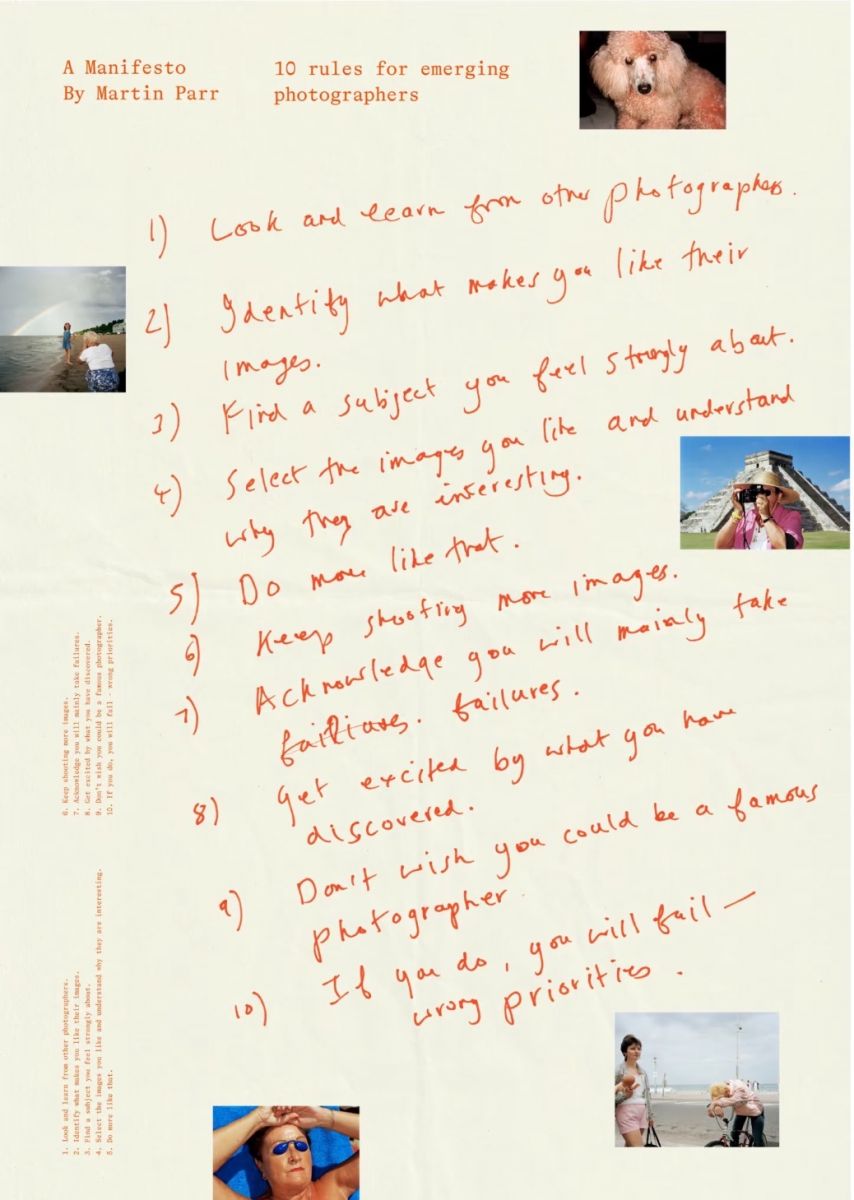 A Manifesto
By Martin Parr
10 rules for emerging
photographers
1) Look and learn from other photographers.
2) Identify what makes you like their
images.
3) Find a subject you feel strongly about.
4) Select the images you like and understand
why they are interesting.
5) Do more like that.
6) Keep shooting more images.
7) Acknowledge you will mainly take
failiures. failures.
8) Get excited by what you have
discovered.
9) Don't wish you could be a famous
photographer.
10) If you do, you will fail —
wrong priorities.
1. Look and learn from other photographers.
2. Identify what makes you like their images.
3. Find a subject you feel strongly about.
4. Select the images you like and understand why they are interesting.
5. Do more like that.
6. Keep shooting more images.
7. Acknowledge you will mainly take failures.
8. Get excited by what you have discovered.
9. Don't wish you could be a famous photographer.
10. If you do, you will fail - wrong priorities.